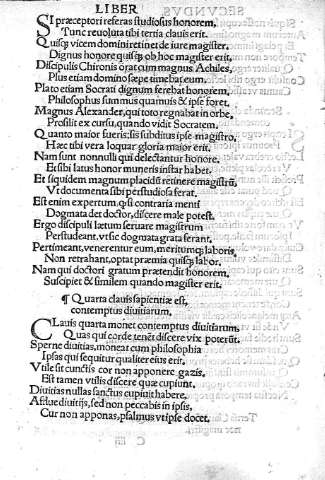 LIBER
SI præceptori referas studiosus honorem,
Tunc reuoluta tibi tertia clauis erit.
Quisq; vicem domini retinet de iure magister,
Dignus honore quisq; ob hoc magister erit.
Discipulis Chironis oratcum magnus Achiles,
Plus etiam domino sæpe timebat eum.
Plato etiam Socrati dignum ferebat honorem,
Philosophus summus quamuis & ipse foret.
Magnus Alexander, qui toto regnabat in orbe,
Prosilit ex cursu, quando vidit Socratem.
Quanto maior fueris, sis subditus ipse magistro,
Hæc tibi vera loquar gloria maior erit.
Nam sunt nonnulli qui delectantur honore,
Et sibi latus honor muneris instar habet.
Et siquidem magnum placidū retinere magistrū,
Vt documenta sibi perstudiosa ferat,
Est enim expertum, q, si contraria menti
Dogmata det doctor, discere male potest.
Ergo discipuli lætum seruate magistrum
Perstudeant, vt sic dogmata grata ferant.
Pertimeant, venerentur eum, meritumq; laboris,
Non retrahant, optat præmia quisq; labor.
Nam qui doctori gratum prætendit honorem,
Suscipiet & similem quando magister erit.
¶ Quarta clauis sapientiæ est,
contemptus diuitiarum.
CLauis quarta monet contemptus diuitiarum,
Quas qui corde tenēt discere vix poterūt.
Sperne diuitias, moneat eum philosophia
Ipsas qui sequitur qualiter eius erit.
Vtile sit cunctis cor non apponere gazis,
Est tamen vtilis discere quæ cupiunt.
Diuitias nullas sanctus cupiuit habere,
Afflue diuitijs, sed non peccabis in ipsis,
Cur non apponas, psalmus vt ipse docet.